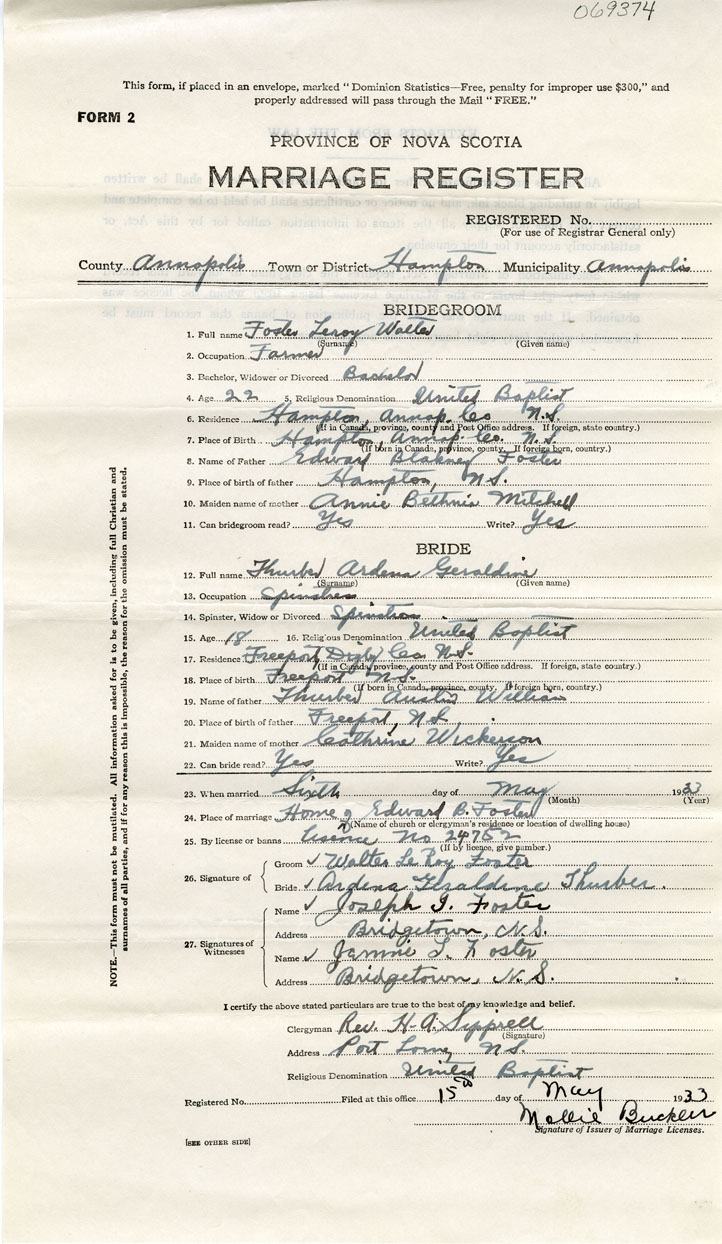 069374
This form, if placed in an envelope, marked "Dominion Statistics—Free, penalty for improper use $300," and
properly addressed will pass through the Mail "FREE."
FORM 2
PROVINCE OF NOVA SCOTIA
MARRIAGE REGISTER
REGISTERED No.
(For use of Registrar General only)
County Annapolis Town or District Hampton Municipality Annapolis
BRIDEGROOM
1. Full name Foster Leroy Walter
(Surname) (Given name)
2. Occupation Farmer
3. Bachelor, Widower or Divorced Bachelor
4. Age 22 5. Religious Denomination United Baptist
6. Residence Hampton, Annap. Co N.S.
(If in Canada, province, county and Post Office address. If foreign, state country.)
7. Place of Birth Hampton, Annap. Co. N.S.
(If born in Canada, province, county. If foreign born, country.)
8. Name of Father Edward Blakney Foster
9. Place of birth of father Hampton, N.S.
10. Maiden name of mother Annie Bethnia Mitchell
11. Can bridegroom read? Yes Write? Yes
BRIDE
12. Full name Thurber Ardena Geraldine
(Surname) (Given name)
13. Occupation Spinstress
14. Spinster, Widow or Divorced
15. Age 18 16. Religious Denomination United Baptist
17. Residence Freeport, Digby Co. N.S.
(If in Canada, province, county and Post Office address. If foreign, state country.)
18. Place of birth Freeport N.S.
(If born in Canada, province, county. If foreign born, country.)
19. Name of father Thurber Austin William
20. Place of birth of father Freeport, N.S.
21. Maiden name of mother Cathrine Wickerson
22. Can bride read? Yes Write? Yes
23. When married Sixth day of May 1933
(Month) (Year)
24. Place of marriage Home of Edward B. Foster
(Name of church or clergyman's residence or location of dwelling house)
25. By license or banns Lisence No 24752
(If by licence, give number.)
26. Signature of
Groom ✓ Walter LeRoy Foster
Bride ✓ Ardena Geraldine Thurber.
27. Signatures of Witnesses
Name ✓ Joseph I. Foster
Address Bridgetown, N.S.
Name ✓ Jennie L. Foster
Address Bridgetown, N.S.
I certify the above stated particulars are true to the best of my knowledge and belief.
Clergyman Rev. H. A. Sipprell
(Signature)
Address Port Lorne N.S.
Religious Denomination United Baptist
Registered No. Filed at this office 15th day of May 1933
Mollie Buckler
Signature of Issuer of Marriage Licenses.
[SEE OTHER SIDE]
NOTE.—This form must not be mutilated. All information asked for is to be given, including full Christian and
surnames of all parties, and if for any reason this is impossible, the reason for the omission must be stated.